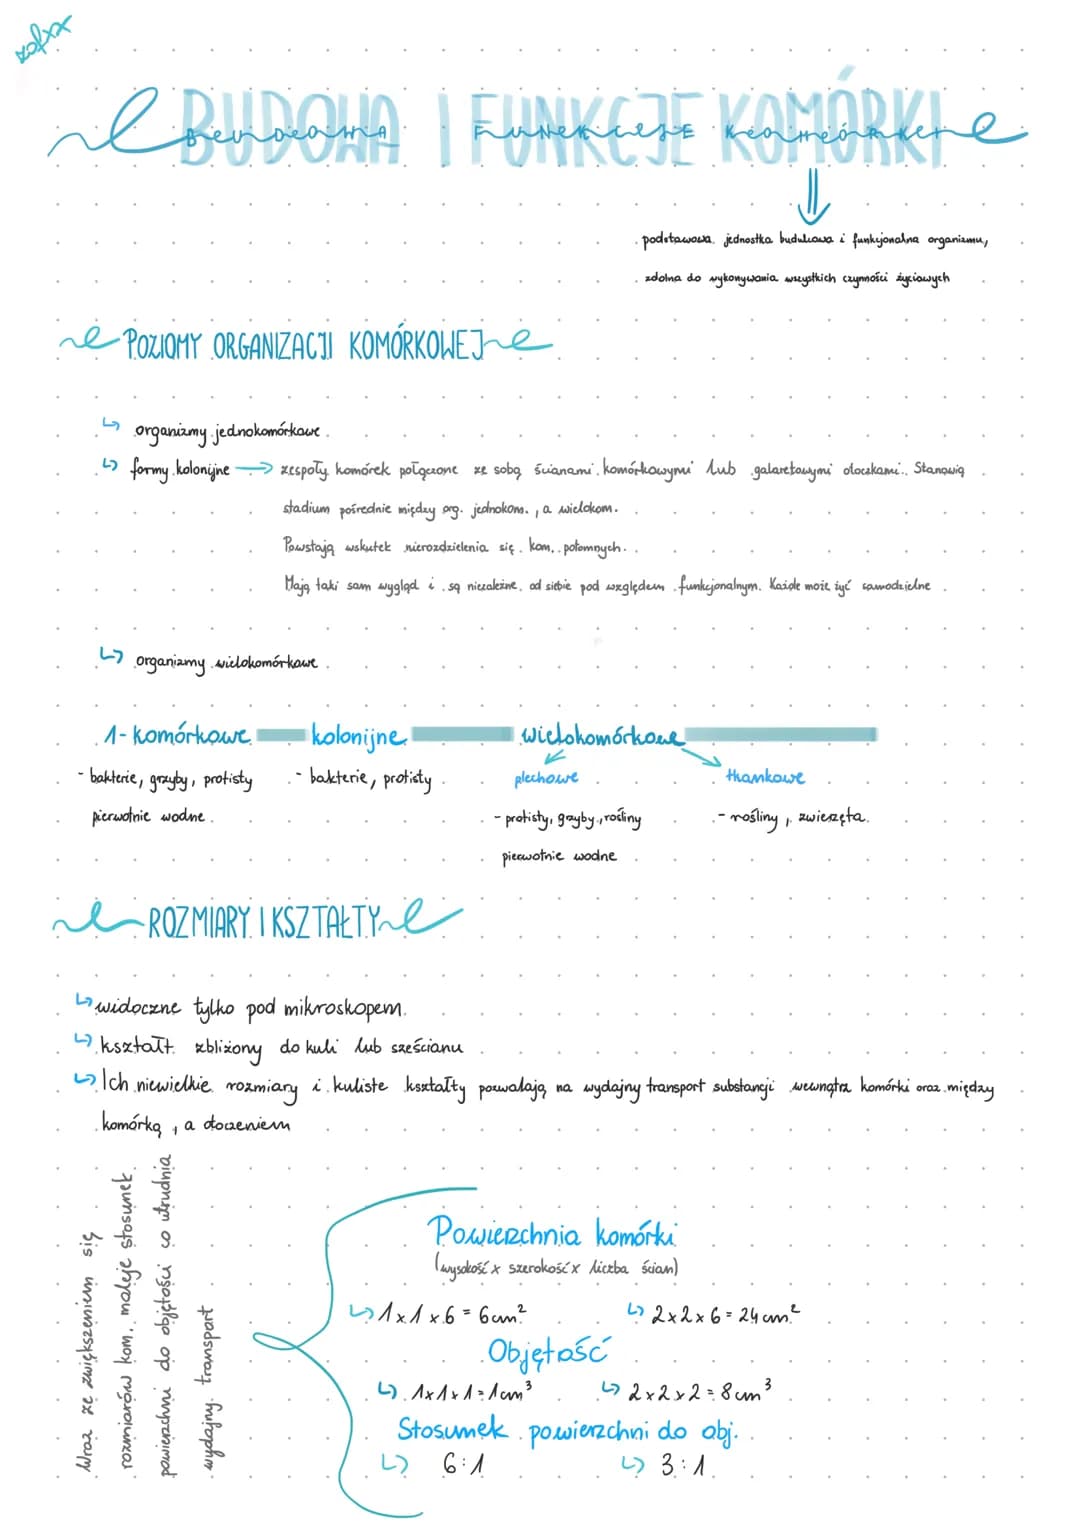 zofxx
BUDOWA I FUNKCJE KOMÓRKI
podstawowa jednostka budulcowa i funkcjonalna organizmu,
zdolna do wykonywania wszystkich czynności życiowych
POZIOMY ORGANIZACJI KOMÓRKOWEJ
↳ organizmy jednokomórkowe
↳ formy kolonijne → zespoły komórek połączone ze sobą ścianami komórkowymi lub galaretowymi otoczkami. Stanowią
stadium pośrednie między org. jednokom., a wielokom.
Powstają wskutek nierozdzielenia się kom. potomnych.
Mają taki sam wygląd i są niezależne od siebie pod względem funkcjonalnym. Każde może żyć samodzielne
↳ organizmy wielokomórkowe
1-komórkowe kolonijne wielokomórkowe
- bakterie, grzyby, protisty - bakterie, protisty plechowe tkankowe
pierwotnie wodne - protisty, grzyby, rośliny - rośliny, zwierzęta
pierwotnie wodne
ROZMIARY I KSZTAŁTY
↳ widoczne tylko pod mikroskopem
↳ kształt zbliżony do kuli lub sześcianu
↳ Ich niewielkie rozmiary i kuliste kształty pozwalają na wydajny transport substancji wewnątrz komórki oraz między
komórką, a otoczeniem
Wraz ze zwiększeniem się
rozmiarów kom. maleje stosunek
powierzchni do objętości co utrudnia
wydajny transport
Powierzchnia komórki
(wysokość x szerokość x liczba ścian)
↳ 1x1x6 = 6cm² ↳ 2x2x6 = 24cm²
Objętość
↳ 1x1x1 = 1cm³ ↳ 2x2x2 = 8cm³
Stosunek powierzchni do obj.
↳ 6:1 ↳ 3:1